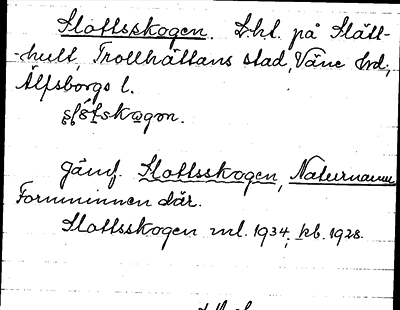 Slottsskogen. Lht. på Slätt-
-hult, Trollhättans stad, Väne hd,
Älfsborgs l.
slåtskogon.
Jämf. Slottsskogen, Naturnamn
Fornminnen där.
Slottsskogen ml. 1934; kb. 1928.